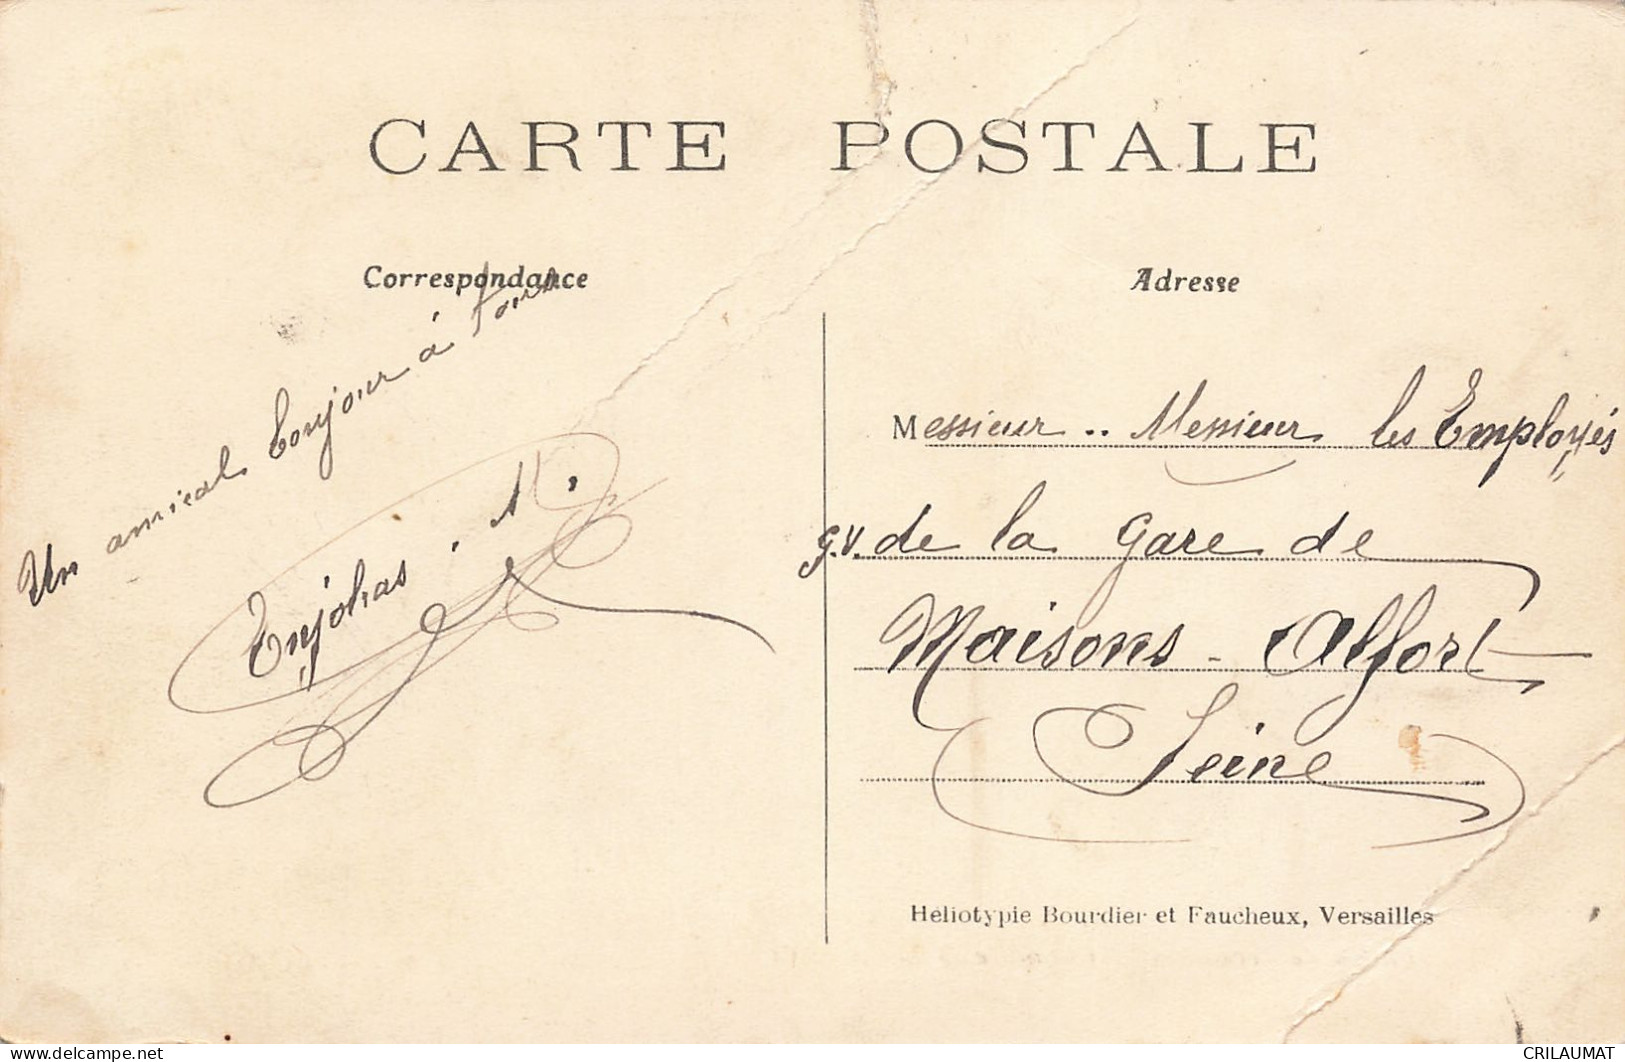 CARTE POSTALE
Correspondance
Un amical bonjour à tous
Enjolras. M.
Adresse
Messieurs.. Messieurs les Employés
g.v. de la gare de
Maisons-Alfort
Seine
Héliotypie Bourdier et Faucheux, Versailles
https://www.delcampe.net
CRILAUMAT